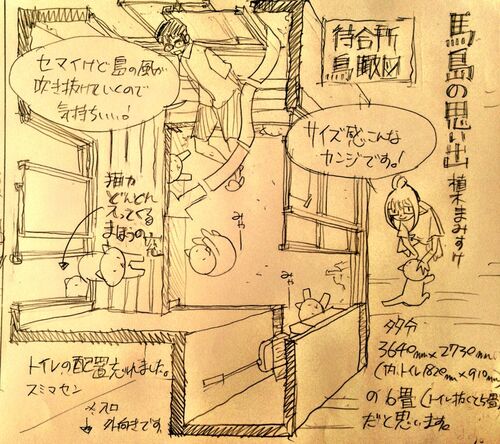 馬島の思い出
植木まみすけ
待合所
鳥瞰図
セマイけど島の風が
吹き抜けていくので
気持ちいい。!
サイズ感こんな
カンジです。!
猫が
どんどん
入ってくる
まほうの窓
みゃー
みゃ
トイレの配置忘れました。
スミマセン
外向きです。
多分
3640mm×2730mm
(内、トイレ1820mm×910mm)
の6畳(トイレ抜くと5畳)
だと思います。